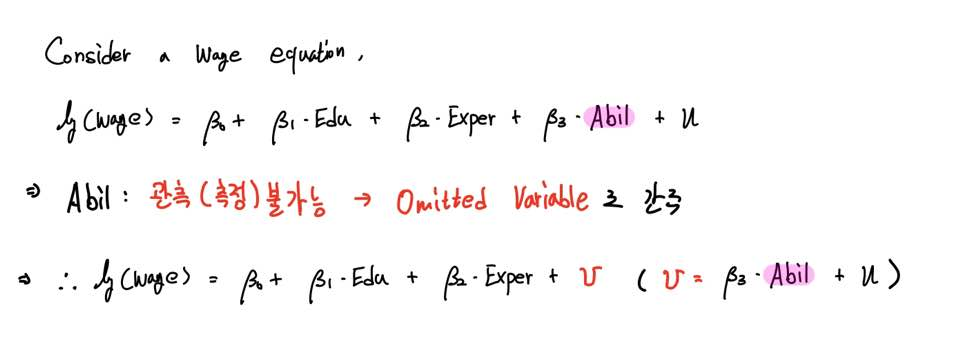 Consider a wage equation,
log(wage) = β₀ + β₁·Edu + β₂·Exper + β₃·Abil + u
⇒ Abil : 관측(측정)불가능 → Omitted Variable 로 간주
⇒ ∴ log(wage) = β₀ + β₁·Edu + β₂·Exper + v ( v = β₃·Abil + u )